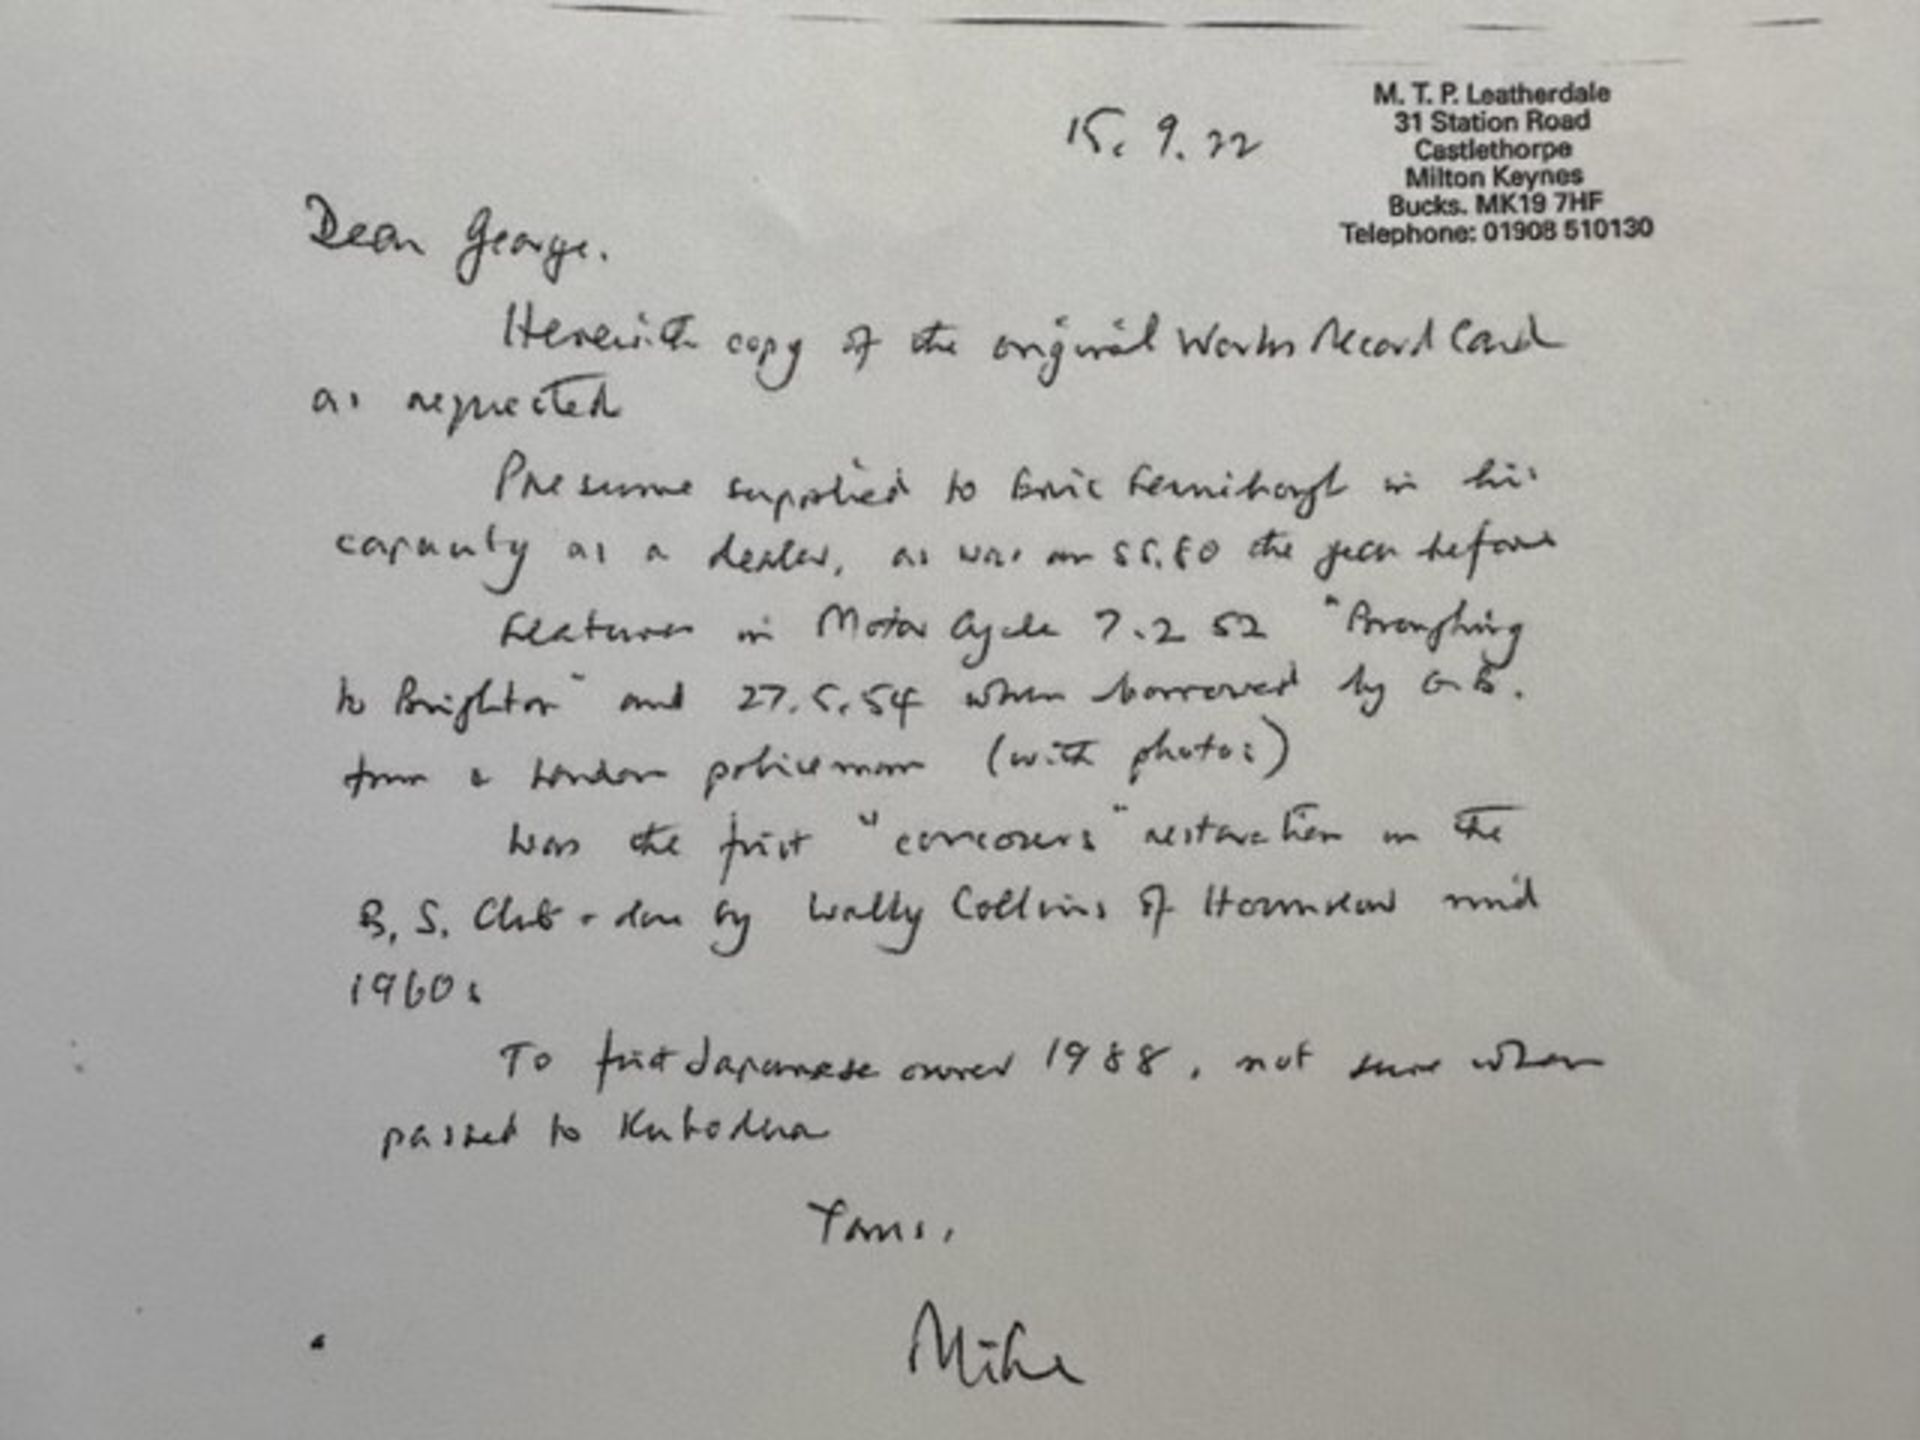 M. T. P. Leatherdale
31 Station Road
Castlethorpe
Milton Keynes
Bucks. MK19 7HF
Telephone: 01908 510130
15. 9. 22
Dear George.
Herewith copy of the original Works Record Card
as requested
Presume supplied to Eric Fernihough in his
capacity as a dealer, as was an SS.80 the year before
Features in Motor Cycle 7.2 52 "Broughing
to Brighton" and 27.5.54 when borrowed by G.B.
from a London policeman (with photos)
Was the first "concours" restoration in the
B. S. Club - done by Wally Collins of Hounslow mid
1960s
To first Japanese owner 1988, not sure when
passed to Kubodera
Yours,
Mike